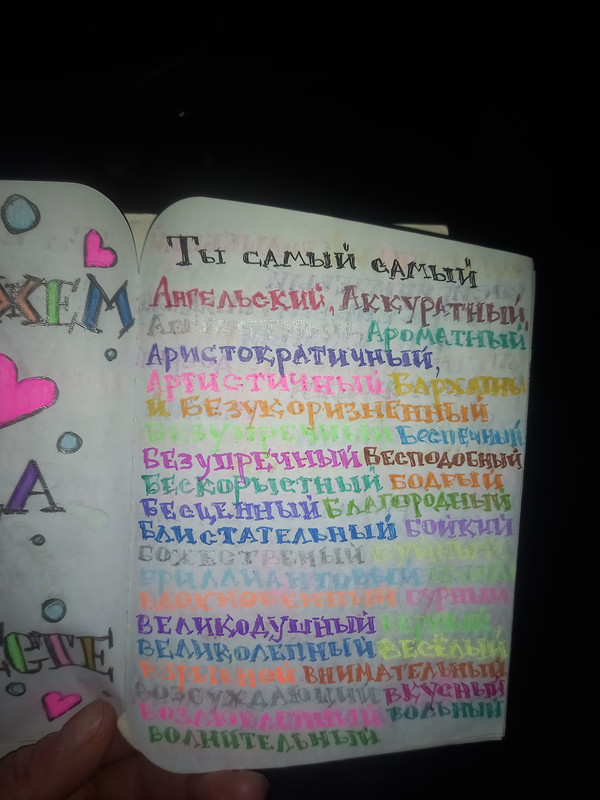 ЖЕМ
А
СТЕ
Ты самый самый
Ангельский, Аккуратный,
Ароматный
Аристократичный,
Артистичный Бархатны
й Безукоризненный
Безупречный Беспечный
Безупречный Бесподобный
Бескорыстный Бодрый
Бесценный Благородный
Блистательный Бойкий
Божественый
Бриллиантовый
Вдохновенный Бурный
Великодушный
Великолепный Весёлый
Взрывной Внимательный
Возбуждающий Вкусный
Возлюбленный Вольный
Волнительный